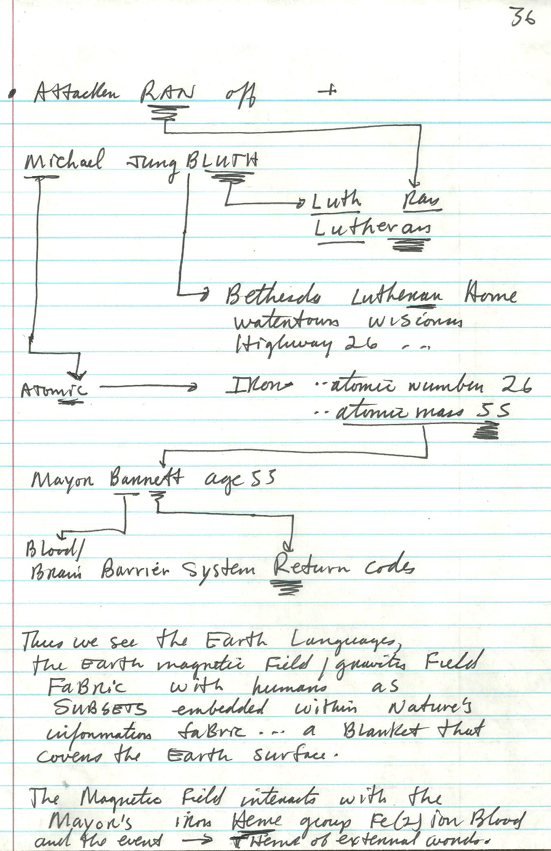 36
• Attacker RAN off +
Michael Jung BLUTH
Luth Ran
Lutheran
Bethesda Lutheran Home
Watertown Wisconsin
Highway 26 ..
Atomic Iron ..atomic number 26
..atomic mass 55
Mayor Barrett age 55
Blood/
Brain Barrier System Return codes
Thus we see the Earth Languages,
the Earth magnetic Field/gravities Field
FaBric with humans as
SUBSETS embedded within Nature's
information faBric ... a Blanket that
covers the Earth surface.
The Magnetic Field interacts with the
Mayor's iron Heme group Fe(2) ion Blood
and the event → THeme of external words.